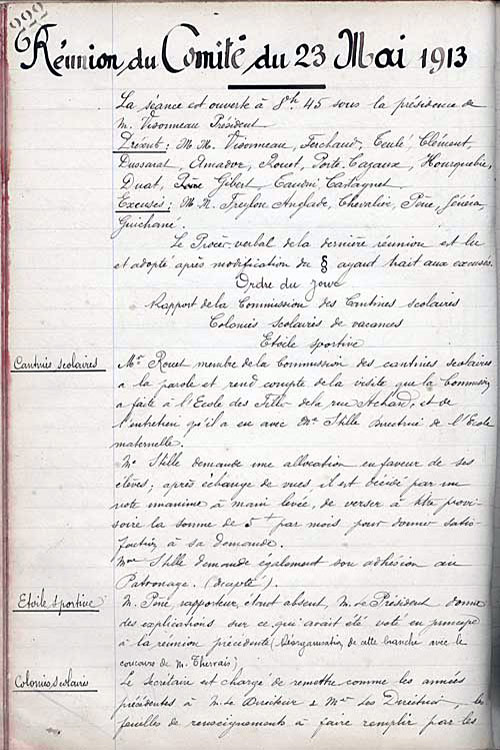 222
Réunion du Comité du 23 Mai 1913
La séance est ouverte à 8h 45 sous la présidence de
M. Visonneau Président
Présents : M.M. Visonneau, Ferchaud, Teulé Clément,
Dussarat, Amador, Rouet, Porte-Cazaux, Hourquebie,
Duat, Gibert, Castagnet
Excusés : M.M. Treylon Anglade, Chevalier, Péne,
Guichané.
Le Procès-verbal de la dernière réunion est lu
et adopté après modification du § ayant trait aux excusés.
Ordre du jour
Rapport de la Commission des Cantines scolaires
Colonies scolaires de vacances
Etoile sportive
Cantines scolaires
Mr Rouet membre de la Commission des cantines scolaires
a la parole et rend compte de la visite que la Commission
a faite à l'Ecole des Filles de la rue Achard, et de
l'entretien qu'il a eu avec Me Stille directrice de l'Ecole
maternelle.
Me Stille demande une allocation en faveur de ses
élèves ; après échange de vues, il est décidé par un
vote unanime à main levée, de verser à titre provi-
soire la somme de 5f par mois pour donner satis-
faction à sa demande.
Mme Stille demande également son adhésion au
Patronage. (Accepté).
Etoile sportive
M. Péne, rapporteur, étant absent, M. le Président donne
des explications sur ce qui avait été voté en principe
à la réunion précédente (Réorganisation de cette branche avec le
concours de M. Thervais)
Colonies scolaires
Le Secrétaire est chargé de remettre comme les années
précédentes à M. le Directeur & Mmes les Directrices, les
feuilles de renseignements à faire remplir par les